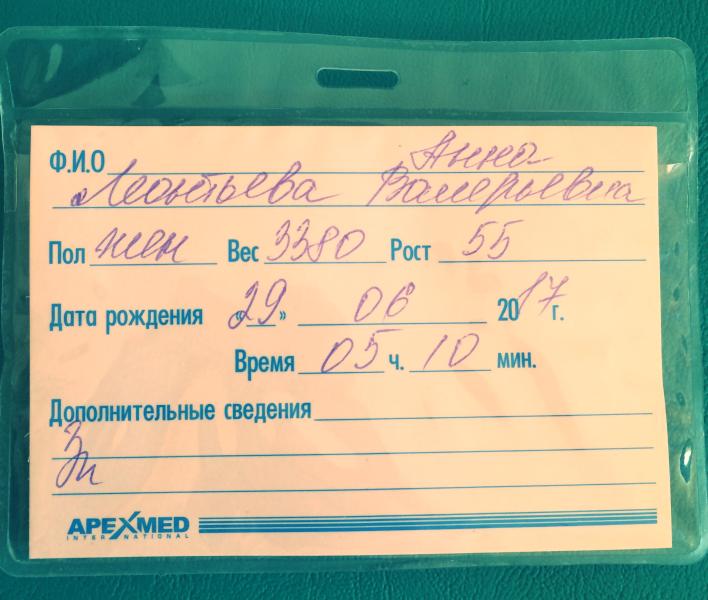 Ф.И.О Анна
Леонтьева Валерьевна
Пол жен Вес 3380 Рост 55
Дата рождения «29» 06 2017 г.
Время 05 ч. 10 мин.
Дополнительные сведения
APEXMED
INTERNATIONAL